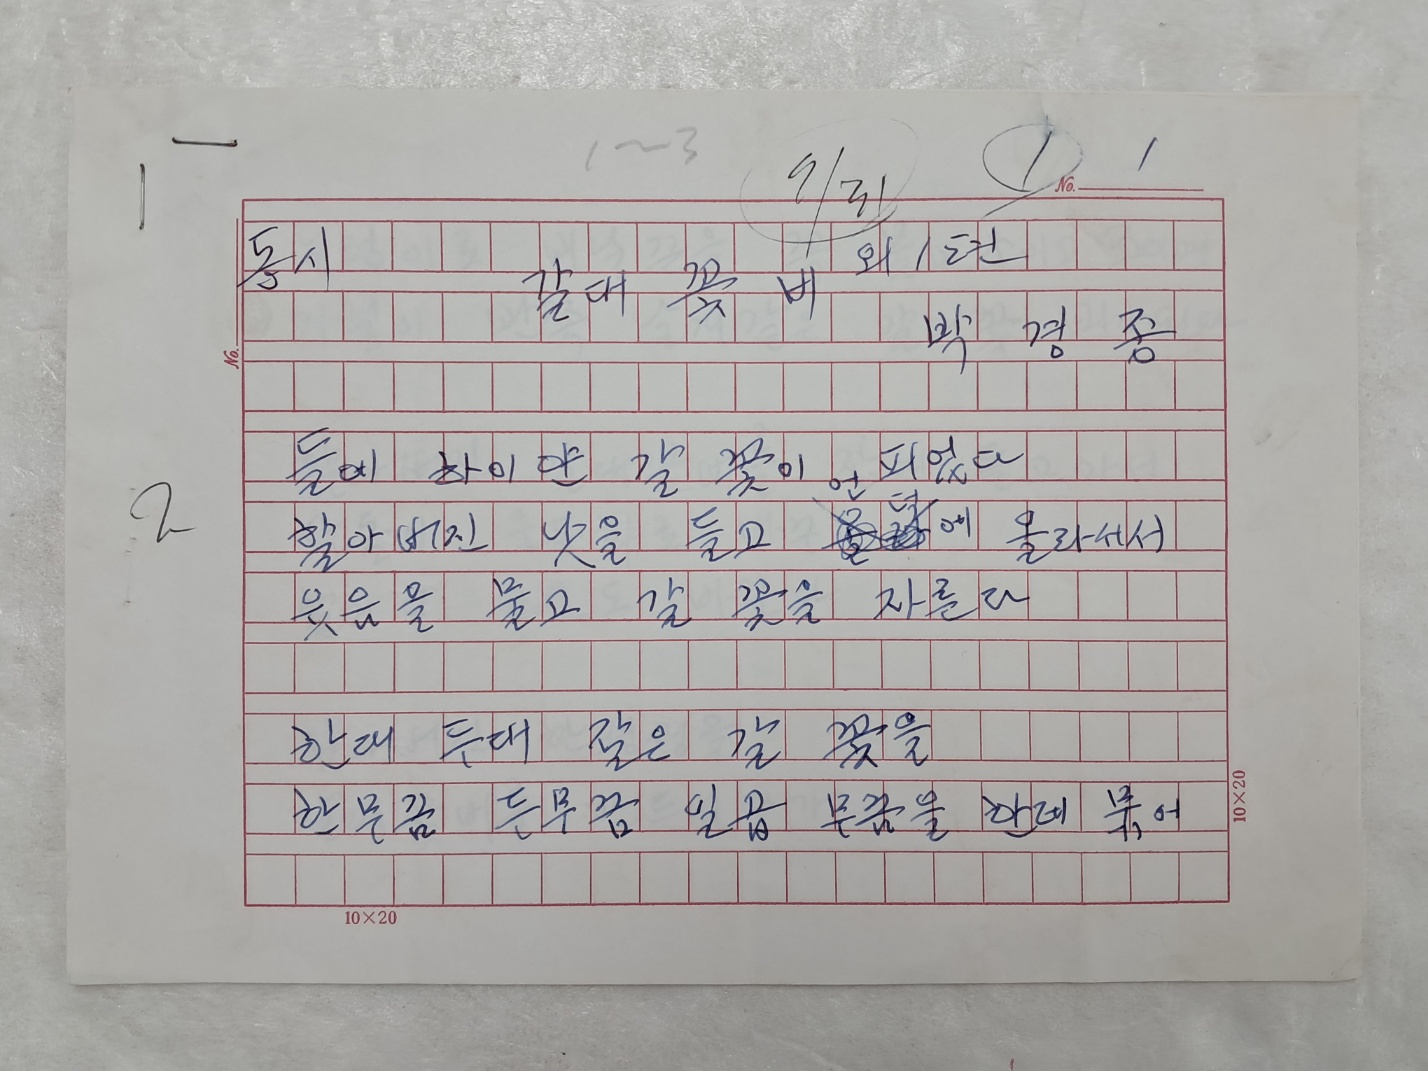 1~3
9/21
1
No. 1
동시
갈대 꽃 비 외 1편
박 경 종
No.
들에 하이얀 갈 꽃이 피었다
할아버진 낫을 들고 언덕에 올라서서
웃음을 물고 갈 꽃을 자른다
2
한대 두대 잘은 갈 꽃을
한 무끔 두무끔 일곱 무끔을 한데 묶어
10×20
10×20